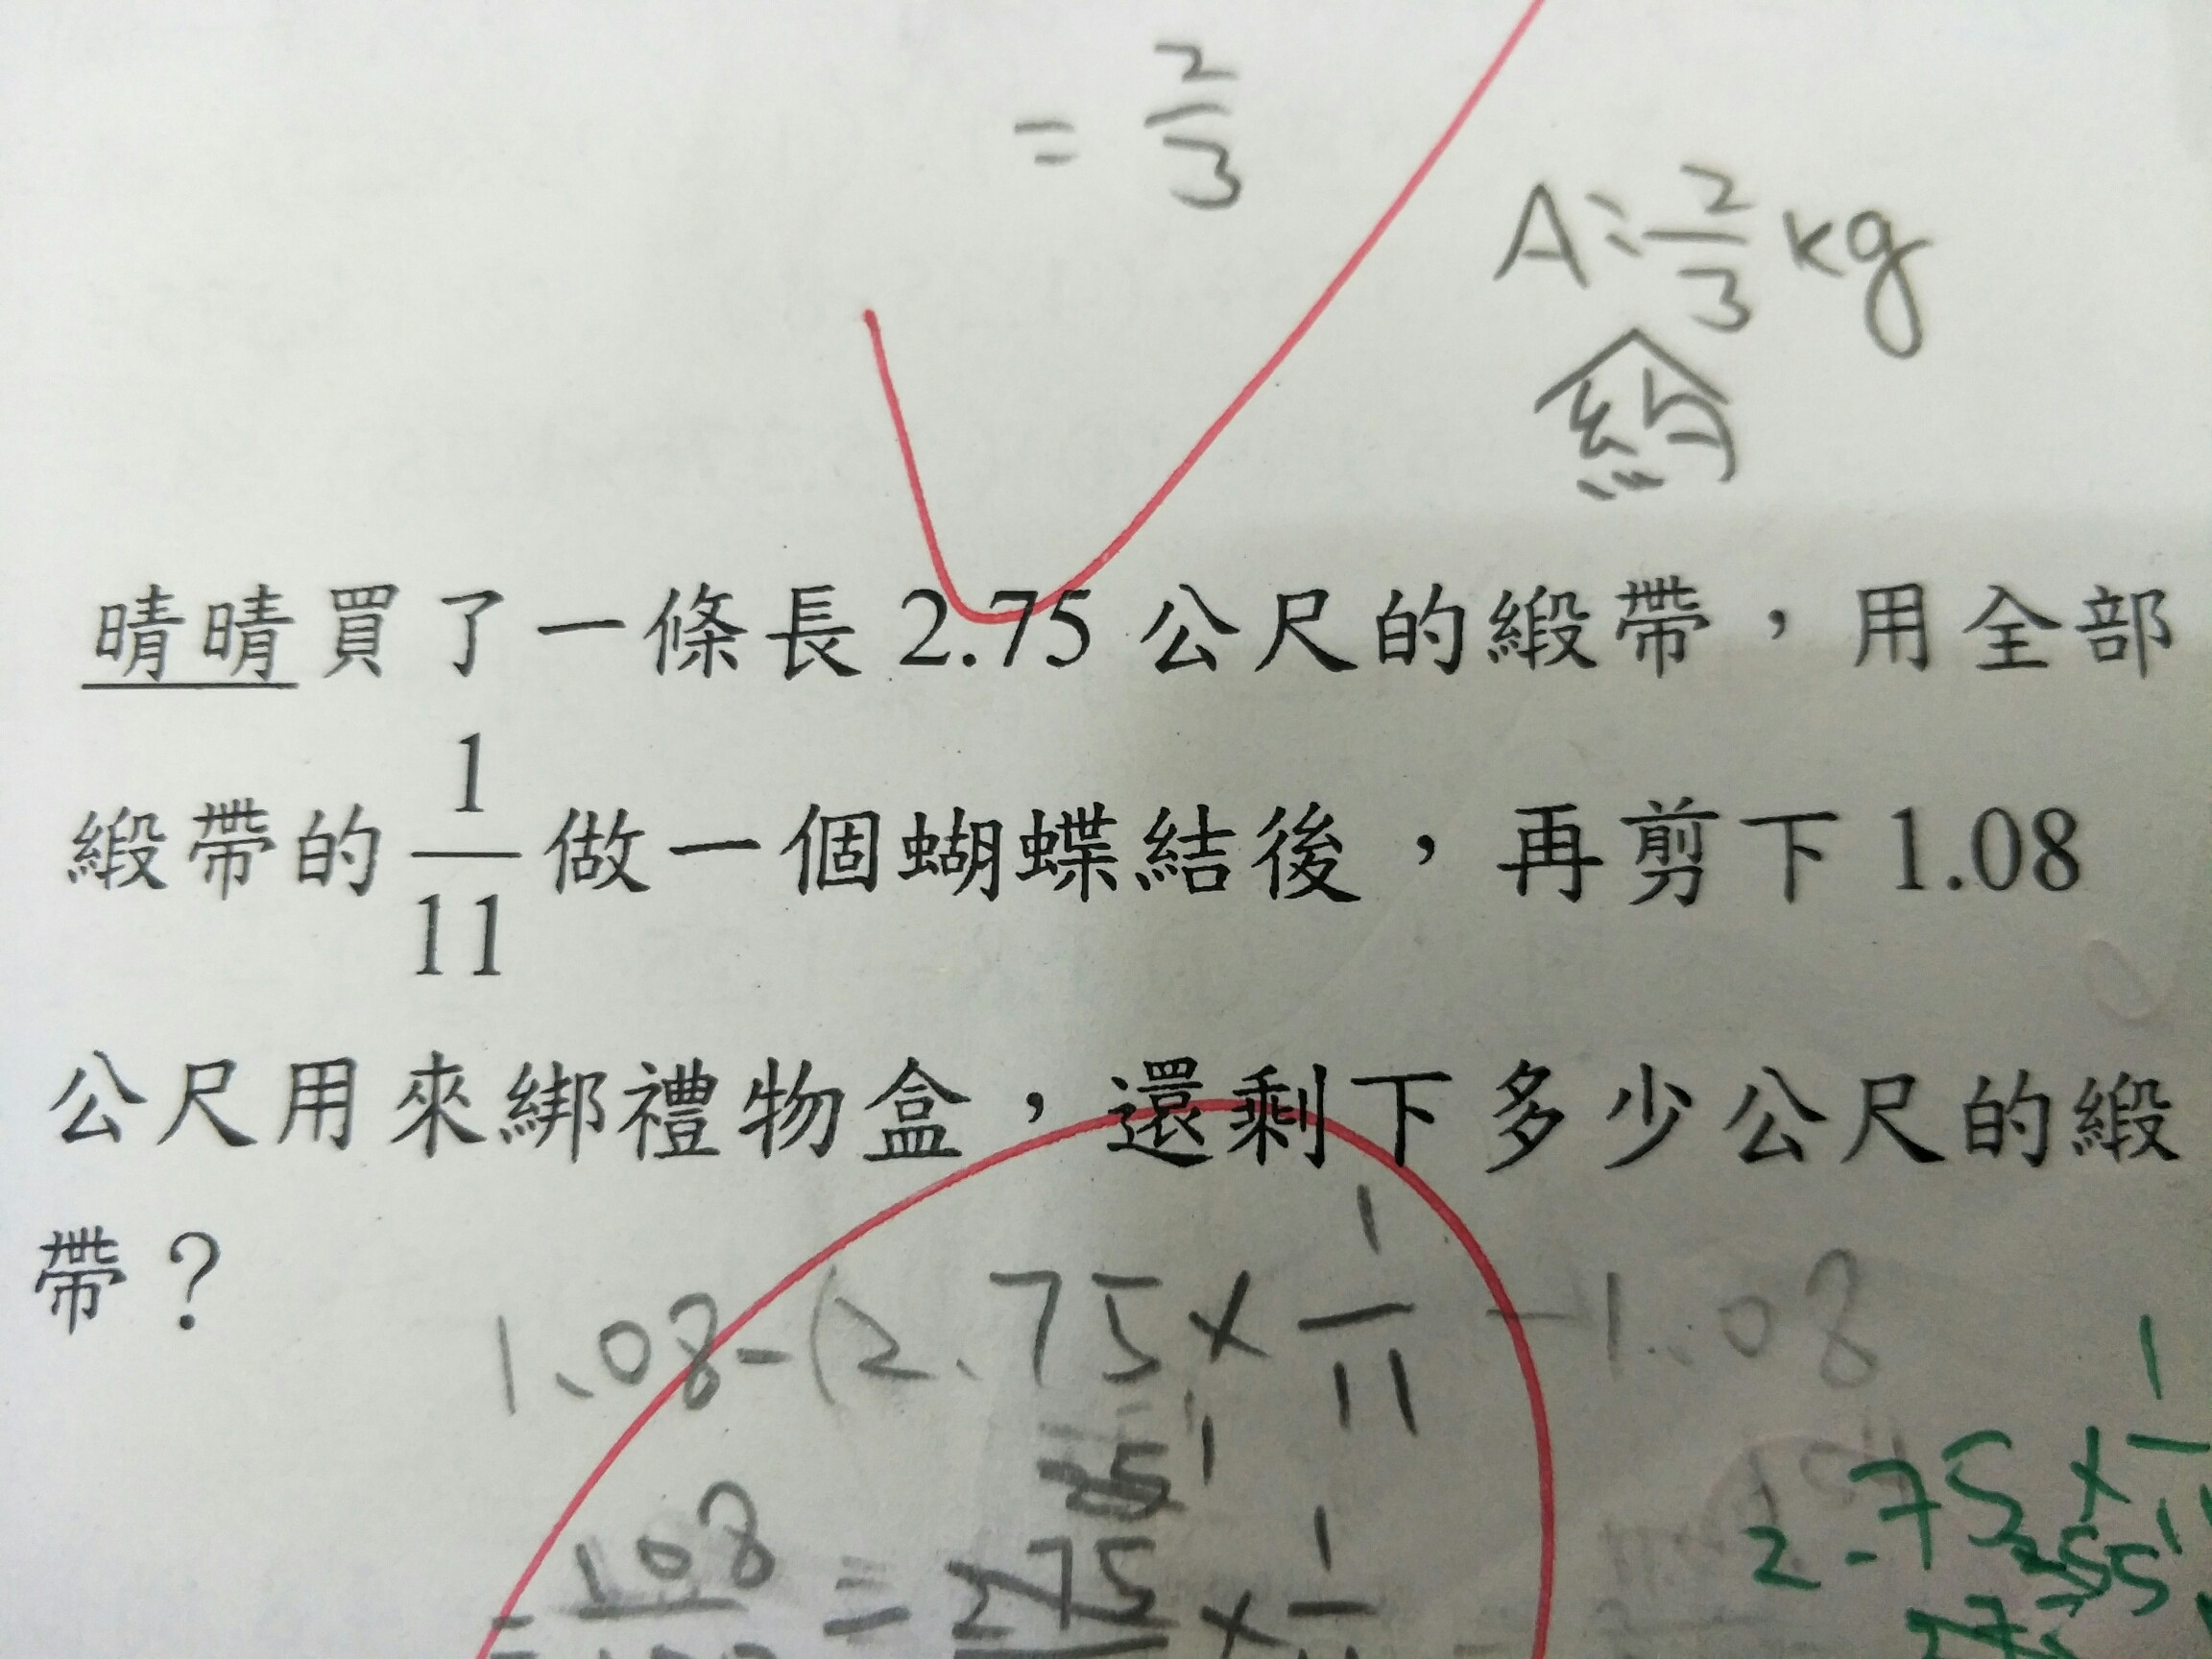 = 2/3
A: 2/3 kg
約
晴晴買了一條長 2.75 公尺的緞帶，用全部
緞帶的 1/11 做一個蝴蝶結後，再剪下 1.08
公尺用來綁禮物盒，還剩下多少公尺的緞
帶？
1.08-(2.75×1/11 -1.08
2.75×1/11
108 = 275 × 1